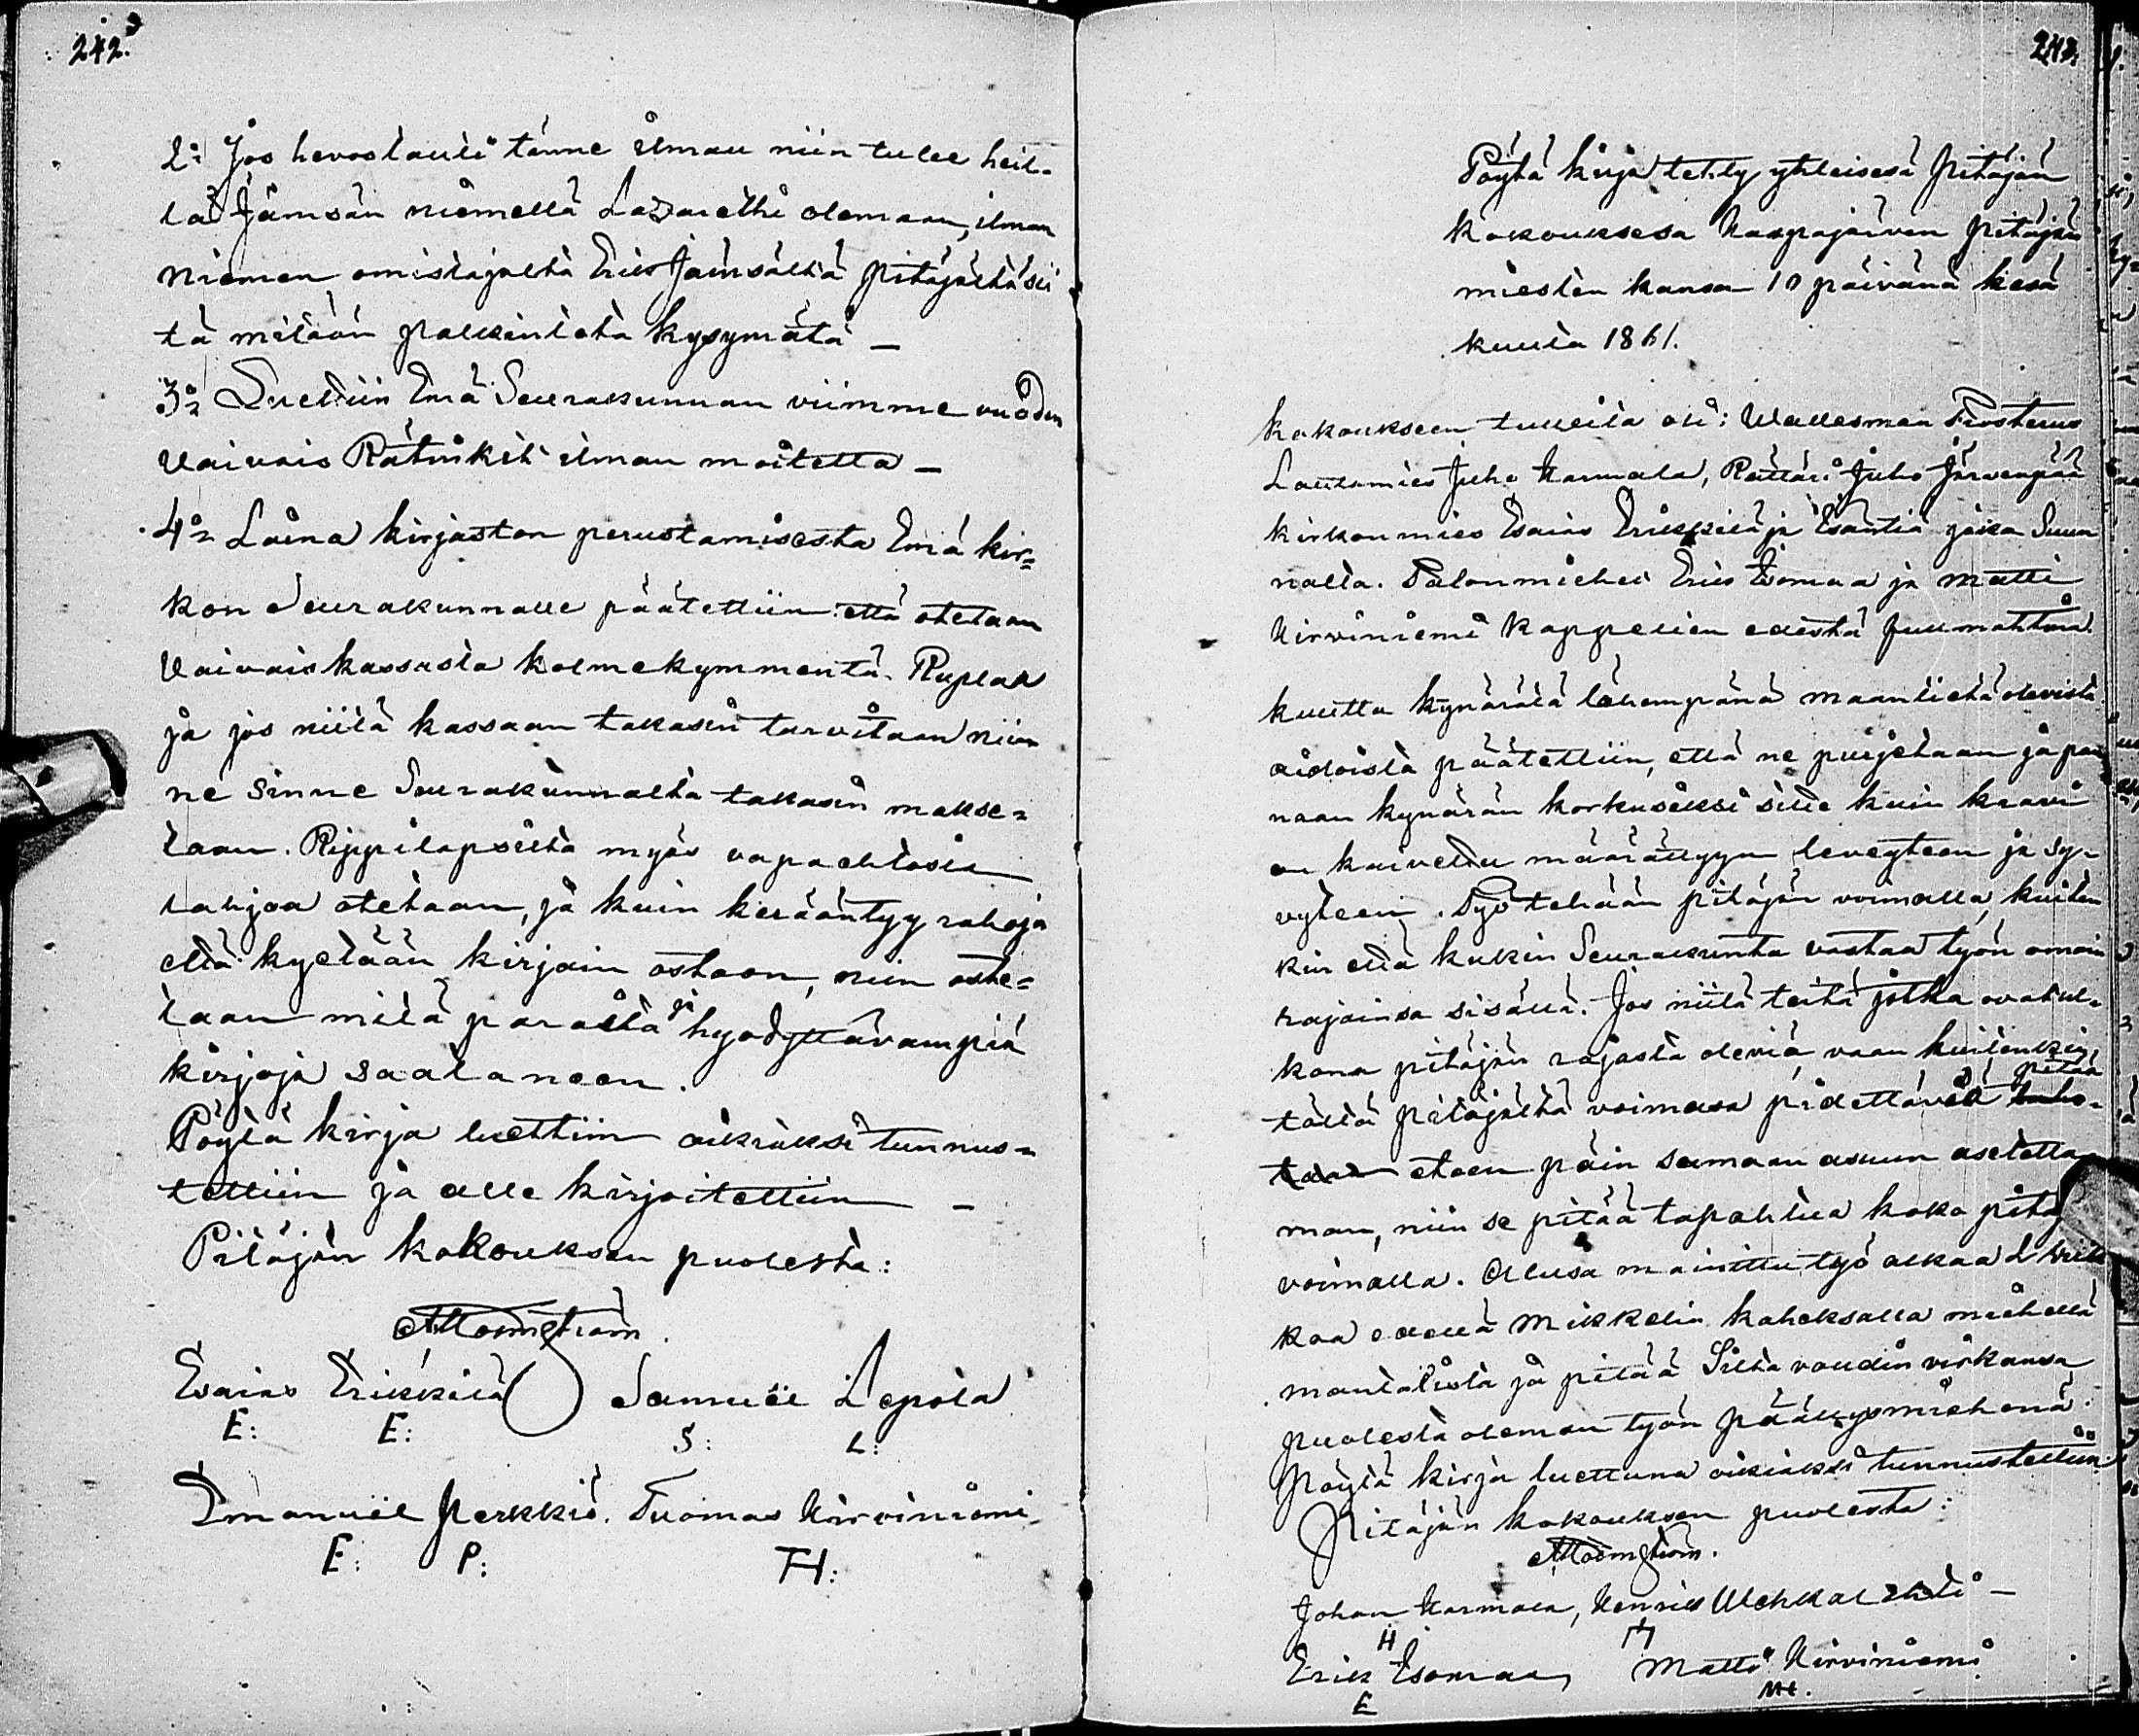 242.
2: Jos hevostauti tänne ilmau niin tulee heil-
lä Jämsän niemellä Lazarethi olemaan, ilman
niemen omistajalta Eric Jämsältä pitäjältä sii
tä mitään palkintota kysymätä —
3: Luettiin Emä Seurakunnan viimme vuoden
Vaivais Rätinkit ilman moitetta —
4: Laina kirjaston perustamisesta Emä kir=
kon Seurakunnalle päätettiin että otetaan
Vaivaiskassasta kolmekymmentä Ruplaa
ja jos niitä kassaan takasin tarvitaan niin
ne sinne Seurakunnalta takasin makse=
taan. Rippilapsilta myös vapaehtosia
lahjoa otetaan, ja kuin kerääntyy rahoja
että kyetään kirjain ostoon, niin oste=
taan mitä parasta ja hyödyttävämpiä
kirjoja saataneen.
Pöytä kirja luettiin oikiaksi tunnus=
tettiin ja alle kirjoitettiin —
Pitäjän kokouksen puolesta:
Esaias Erikkilä Samuel Lepola
E: E: S: L:
Emanuel Perkkiö. Tuomas Hirviniemi
E: P: TH:
243.
Pöytä kirja tehty yhteisesä pitäjän
kokouksesa Haapajärven pitäjän
miesten kansa 10 päivänä kesä
kuuta 1861.
kokoukseen tulleita oli: Wallesman Frosterus
Lautamies Juho Karmala, Rättäri Juho Järvenpää
kirkonmies Esaias Erikkilä ja Isäntiä joka Suun
nalta. Talonmiehet Eric Isomaa ja Matti
Hirviniemi kappelien edestä
kuutta kynärätä lähempänä maantietä olevista
aidoista päätettiin, että ne purjetaan ja pan
naan kynärän korkuseksi sitte kuin kraavi
on kaivettu määrättyyn leveyteen ja sy=
vyteen. Työ tehään pitäjän voimalla, kuiten
kin että kukin Seurakunta vastaa työn omain
rajainsa sisällä. Jos niitä teitä jotka ovat ul=
kona pitäjän rajasta oleviä, vaan kuitenkin
tältä pitäjältä voimasa pidettävät pitää
eteen päin samaan asuun asetetta
man, niin se pitää tapahtua koko pitä
voimalla. Allusa mainittu työ alkaa 2 viik
koa edellä Mikkelin kaheksalla miehellä
mantalista ja pitää Silta voudin virkansa
puolesta oleman työn päällysmiehenä.
Pöytä kirja luettuna oikiaksi tunnustettiin.
Pitäjän kokouksen puolesta:
Johan Karmala, Henrick —
H
Erick Isomaa, Matti Hirviniemi
E MH.